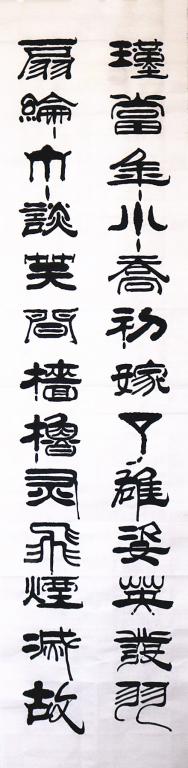 瑾當年小喬初嫁了雄姿英發羽
扇綸巾談笑間檣櫓灰飛煙滅故